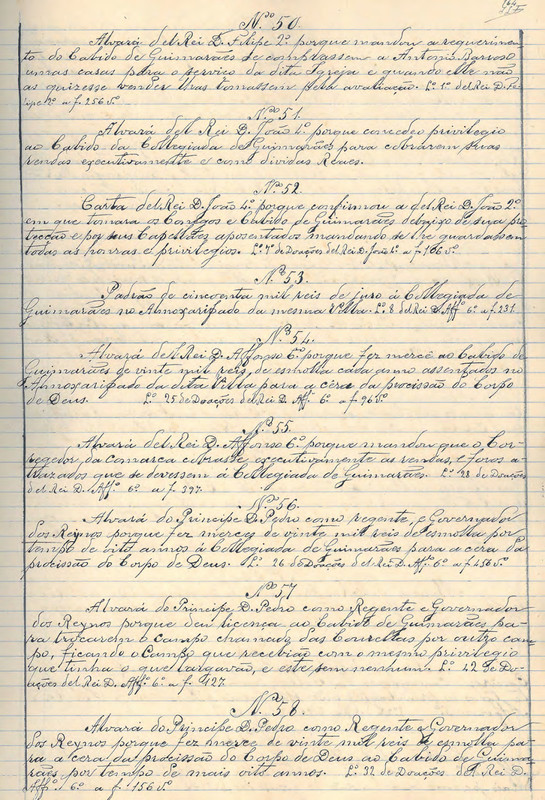 Nº 50.
Alvará del Rei D. Filipe 2º porque mandou a requerimen-
to do Cabido de Guimarães se comprassem a Antonio Barroso
umas casas para o serviço da dita Igreja e quando elle não
as quizesse vender lhas tomassem pela avaliação. Lº 1º del Rei D. Fe-
lipe 2º a f. 256 vº
Nº 51.
Alvará del Rei D. João 4º porque concedeo privilegio
ao Cabido da Collegiada de Guimarães para cobrarem suas
rendas executivamente e como dividas Reaes.
Nº 52.
Carta del Rei D. João 4º porque confirmou a del Rei D. João 2º
em que tomara os Conegos e Cabido de Guimarães debaixo de sua pro-
tecção e por seus Capellães aposentados mandando se lhe guardassem
todas as honras e privilegios. Lº 7º de Doações del Rei D. João 4º a f. 186 vº
Nº 53.
Padrão de cincoenta mil reis de juro á Collegiada de
Guimarães no Almoxarifado da mesma Villa. Lº 8 del Rei D. Affº 6º a f. 231
Nº 54.
Alvará del Rei D. Affonso 6º porque fez mercê ao Cabido de
Guimarães de vinte mil reis, de esmolla cada anno assentados no
Almoxarifado da dita Villa para a cêra da procissão do Corpo
de Deus. Lº 25 de Doações del Rei D. Aff. 6º a f. 26 vº
Nº 55.
Alvará del Rei D. Affonso 6º porque mandou que o Cor-
regedor da comarca cobrasse executivamente as rendas, e foros a-
trazados que se devessem á Collegiada de Guimarães. Lº 28 de Doações
del Rei D. Affº 6º a f. 397.
Nº 56.
Alvará do Principe D. Pedro como regente, e Governador
dos Reynos porque fez merce de vinte mil reis de esmolla por
tempo de oito annos á Collegiada de Guimarães para a cera da
procissão do Corpo de Deus. Lº 26 de Doações del Rei D. Affº 6º a f. 456 vº
Nº 57
Alvará do Principe D. Pedro como Regente e Governador
dos Reynos porque deu licença ao Cabido de Guimarães pa-
ra trocarem o campo chamado das Courellas por outro cam-
po, ficando o Campo que recebião com o mesmo privilegio
que tinha o que largavão, e este sem nenhum. Lº 42 de Do-
ações del Rei D. Affº 6º a f. 127.
Nº 58.
Alvará do Principe D. Pedro como Regente e Governador
dos Reynos porque fez merce de vinte mil reis de esmolla pa-
ra a cera da procissão do Corpo de Deus ao Cabido de Guima-
rães por tempo de mais oito annos. Lº 32 de Doações del Rei D.
Affº 6º a f. 156 vº